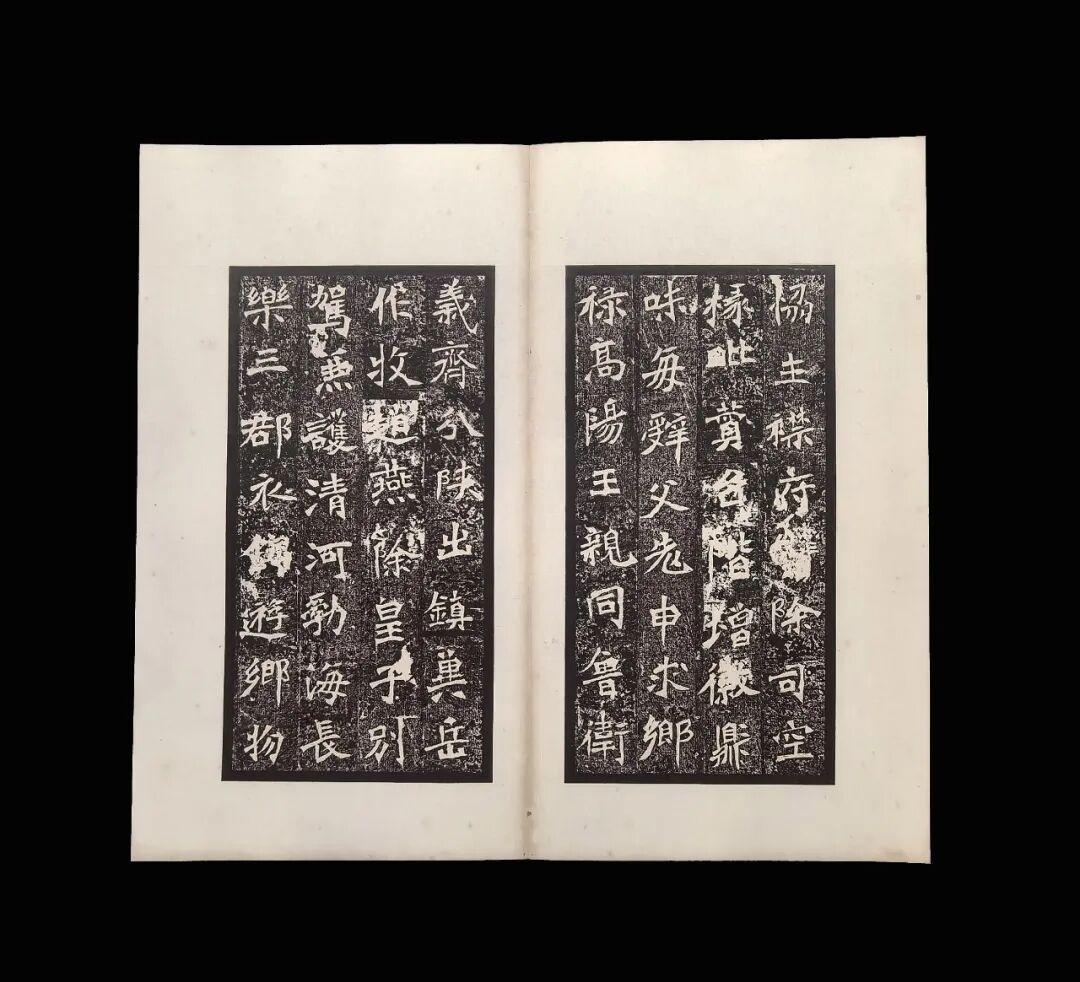 協主襟府除司空
掾賛台階增徽鼎
味每辭父老申求鄉
禄高陽王親同魯衛
義齊分陝出鎮冀岳
作牧趙燕除皇子別
駕兼護清河勃海長
樂三郡衣錦遊鄉物